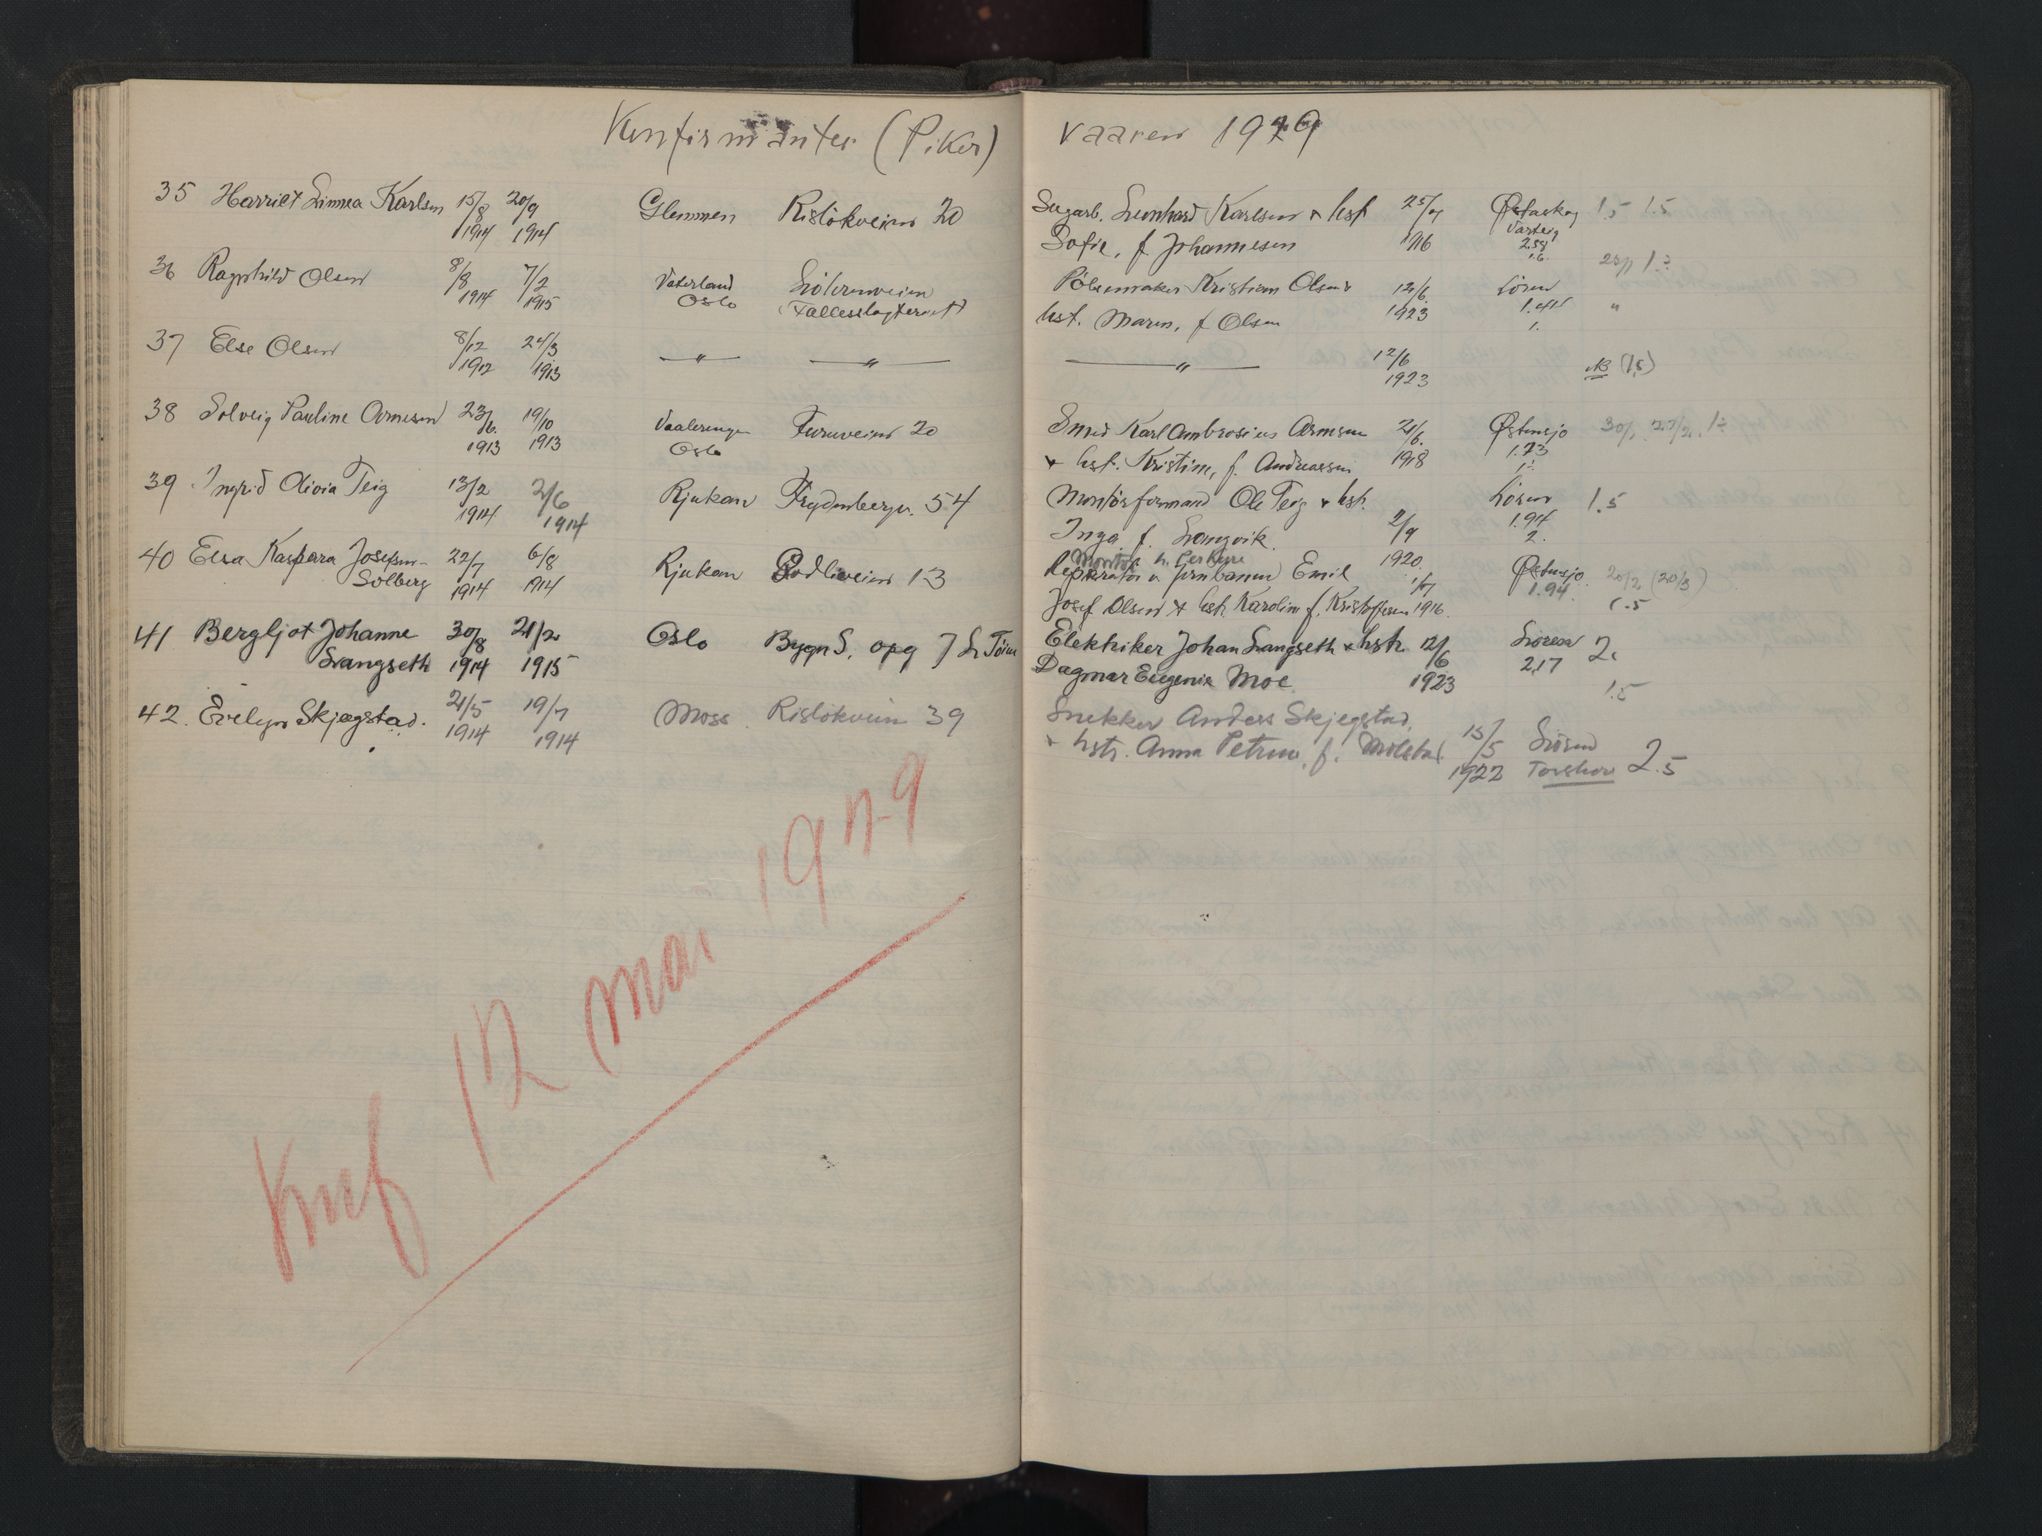 Konfirmanter (Piker) vaaren 1929
35 Harriet Linnea Karlsen 15/8 20/9 Glemmen Risløkveien 20 Leonhard Karlsen & hst 25/9 Østaskog 1.5 1.5
1914 1914 Sofie, f Johannesen 1916 Varteig 2.58
36 Ragnhild Olsen 8/8 7/2 Vaterland Lørenveien Pølsemaker Kristian Olsen 12/6 Løren
1914 1915 Oslo (Fællesslagteriet) hst. Maren, f Olsen 1923 1.41 "
1.
37 Else Olsen 8/12 24/3 " " " 12/6 NB (1,5)
1912 1913 1923
38 Solveig Pauline Arnesen 23/6 19/10 Vaalerengen Furuveien 20 Smed Karl Ambrosius Arnesen 21/6 Østensjo
1913 1913 Oslo & hst. Kristine, f. Andreassen 1918 1.73
39 Ingrid Olivia Teig 13/2 2/6 Rjukan Frydenbergv. 54 Montørformand Ole Teig & hst. Løren 1.5
1914 1914 Inga f. Langvik 2/9 1920 1.94
2.
40 Elsa Kaspara Josefsen- 22/7 6/8 Rjukan Godliaveien 13 Reparatør v jernbanen Emil 1/7 Østensjo 20/2 (20/3)
Solberg 1914 1914 Josef Olsen & hst. Karoline f. Kristoffersen 1916 1.94. 1.5
41 Bergljot Johanne 30/8 21/2 Oslo Bygn S, opg 7 L. Tøien Elektriker Johan Langseth & hstr. 12/6 Løren 2.
Langseth 1914 1915 Dagmar Eugenie Moe 1923 2,17
1.5
42. Evelyn Skjegstad. 21/5 19/7 Moss Risløkveien 39 Snekker Anders Skjegstad, 15/5 Løren 2.5
1914 1914 & hstr. Anna Petrine, f. Molstad 1922 Torshov
Knf 12 mai 1929